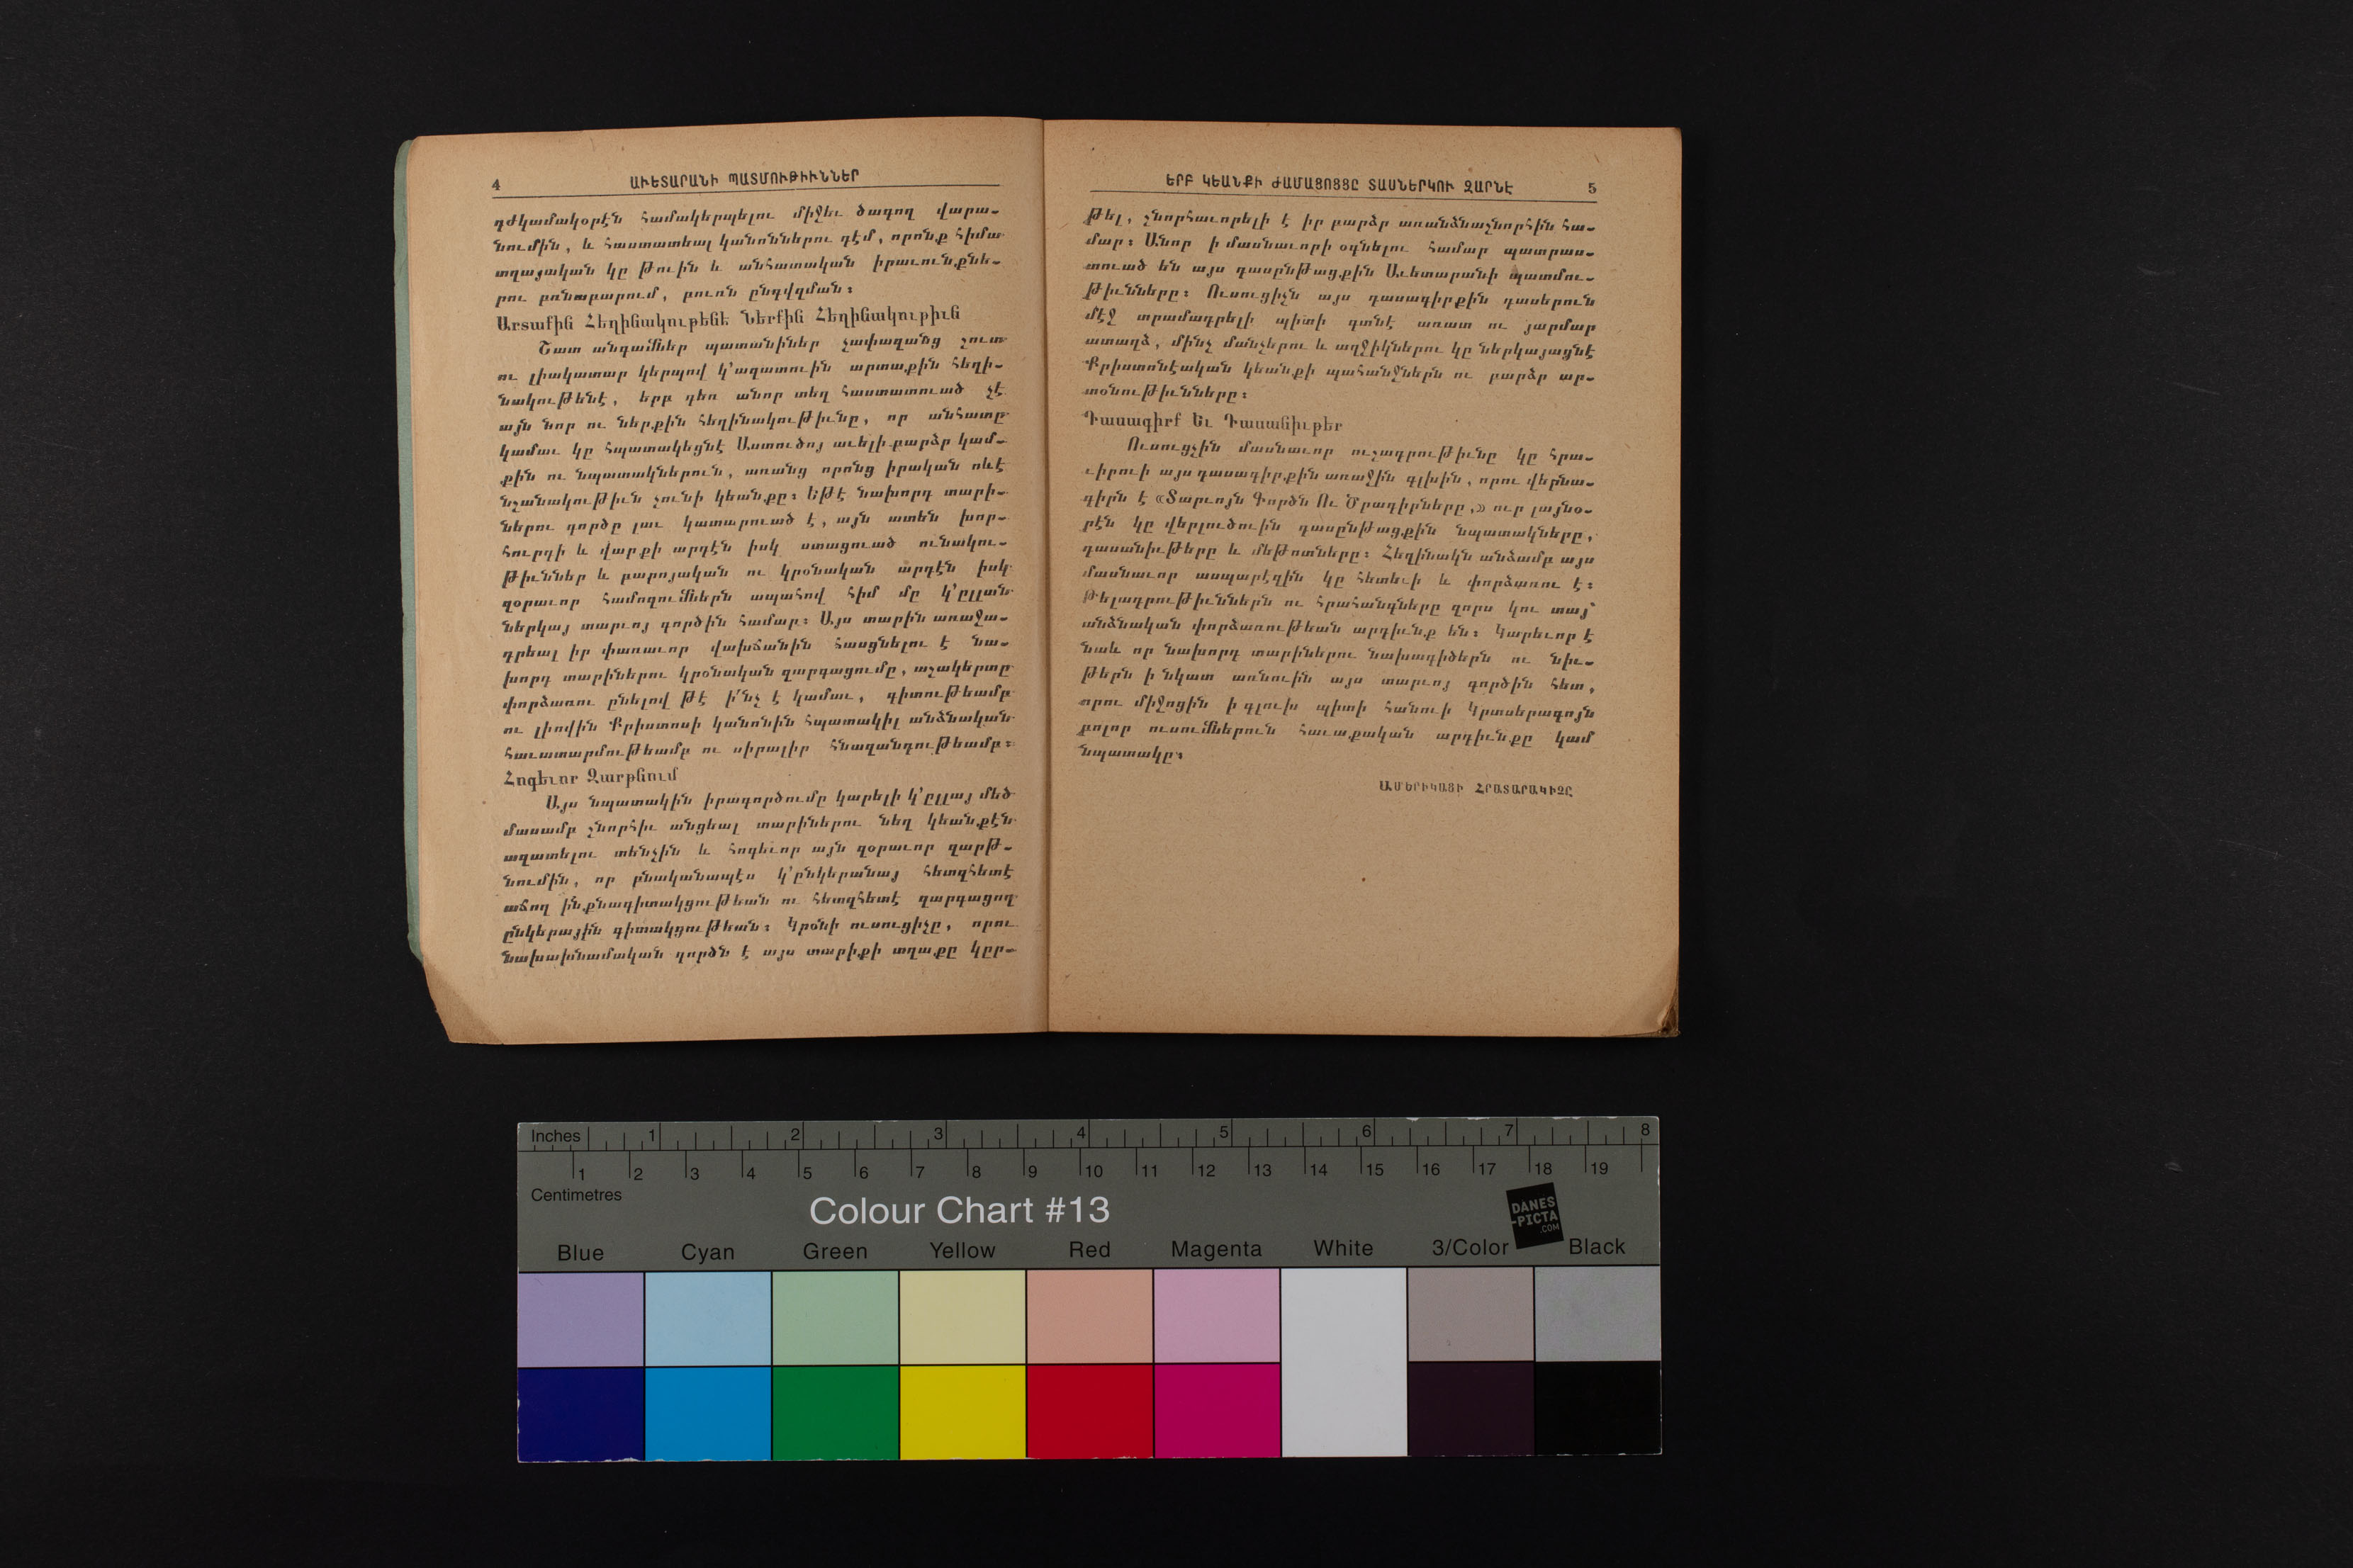 4
ԱՒԵՏԱՐԱՆԻ ՊԱՏՄՈՒԹԻՒՆՆԵՐ
դժկամակօրէն համակերպելու միջեւ ծագող վարա-
նումին, և հաստատեալ կանոններու դէմ, որոնք հիմա
տղայական կը թուին և անհատական իրաւունքնե-
րու բռնաբարում, բուռն ընդվզման։
Արտաքին Հեղինակութենէ Ներքին Հեղինակութիւն
Շատ անգամներ պատանիներ չափազանց շուտ
ու լիակատար կերպով կ՚ազատուին արտաքին հեղի-
նակութենէ, երբ դեռ անոր տեղ հաստատուած չէ
այն նոր ու ներքին հեղինակութիւնը, որ անհատը
կամաւ կը հպատակեցնէ Աստուծոյ աւելի բարձր կամ-
քին ու նպատակներուն, առանց որոնց իրական ոևէ
նշանակութիւն չունի կեանքը։ Եթէ նախորդ տարի-
ներու գործը լաւ կատարուած է, այն ատեն խոր-
հուրդի և վարքի արդէն իսկ ստացուած ունակու-
թիւններ և բարոյական ու կրօնական արդէն իսկ
զօրաւոր համոզումներն ապահով հիմ մը կ՚ըլլան
ներկայ տարւոյ գործին համար։ Այս տարին առաջա-
դրեալ իր փառաւոր վախճանին հասցնելու է նա-
խորդ տարիներու կրօնական զարգացումը, աշակերտը
փորձառու ընելով թէ ի՛նչ է կամաւ, գիտութեամբ
ու լիովին Քրիստոսի կանոնին հպատակիլ անձնական
հաւատարմութեամբ ու սիրալիր հնազանդութեամբ։
Հոգեւոր Զարթնում
Այս նպատակին իրագործումը կարելի կ՚ըլլայ մեծ
մասամբ շնորհիւ անցեալ տարիներու նեղ կեանքէն
ազատելու տենչին և հոգեւոր այն զօրաւոր զարթ-
նումին, որ բնականապէս կ՚ընկերանայ հետզհետէ
աճող ինքնագիտակցութեան ու հետզհետէ զարգացող
ընկերային գիտակցութեան։ Կրօնի ուսուցիչը, որու
նախախնամական գործն է այս տարիքի տղաքը կըր-
ԵՐԲ ԿԵԱՆՔԻ ԺԱՄԱՑՈՅՑԸ ՏԱՍՆԵՐԿՈՒ ԶԱՐՆԷ
5
թել, շնորհաւորելի է իր բարձր առանձնաշնորհին հա-
մար։ Անոր ի մասնաւորի օգնելու համար պատրաս-
տուած են այս դասընթացքին Աւետարանի պատմու-
թիւնները։ Ուսուցիչն այս դասագիրքին դասերուն
մէջ տրամադրելի պիտի գտնէ առատ ու յարմար
ատաղձ, մինչ մանչերու և աղջիկներու կը ներկայացնէ
Քրիստոնէական կեանքի պահանջներն ու բարձր ար-
տօնութիւնները։
Դասագիրք Եւ Դասանիւթեր
Ուսուցչին մասնաւոր ուշադրութիւնը կը հրա-
ւիրուի այս դասագիրքին առաջին գլխին, որու վերնա-
գիրն է «Տարւոյն Գործն Ու Ծրագիրները,» ուր լայնօ-
րէն կը վերլուծուին դասընթացքին նպատակները,
դասանիւթերը և մեթոտները։ Հեղինակն անձամբ այս
մասնաւոր ասպարէզին կը հետեւի և փորձառու է։
Թելադրութիւններն ու հրահանգները զորս կու տայ՝
անձնական փորձառութեան արդիւնք են։ Կարեւոր է
նաև որ նախորդ տարիներու նախագիծերն ու նիւ-
թերն ի նկատ առնուին այս տարւոյ գործին հետ,
որու միջոցին ի գլուխ պիտի հանուի Կրտսերագոյն
բոլոր ուսումներուն հաւաքական արդիւնքը կամ
նպատակը։
ԱՄԵՐԻԿԱՑԻ ՀՐԱՏԱՐԱԿԻՉԸ
Inches 1 2 3 4 5 6 7 8
1 2 3 4 5 6 7 8 9 10 11 12 13 14 15 16 17 18 19
Centimetres
Colour Chart #13
DANES
-PICTA
.COM
Blue Cyan Green Yellow Red Magenta White 3/Color Black